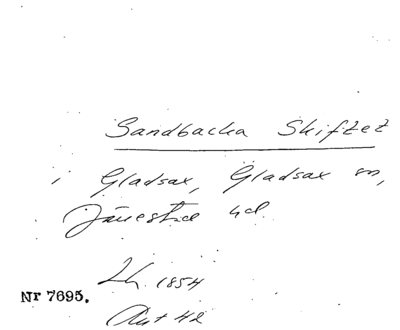 Sandbacka Skiftet
i Gladsax, Gladsax sn,
Järrestad hd.
Lh. 1854
Nr 7695.
Akt 42